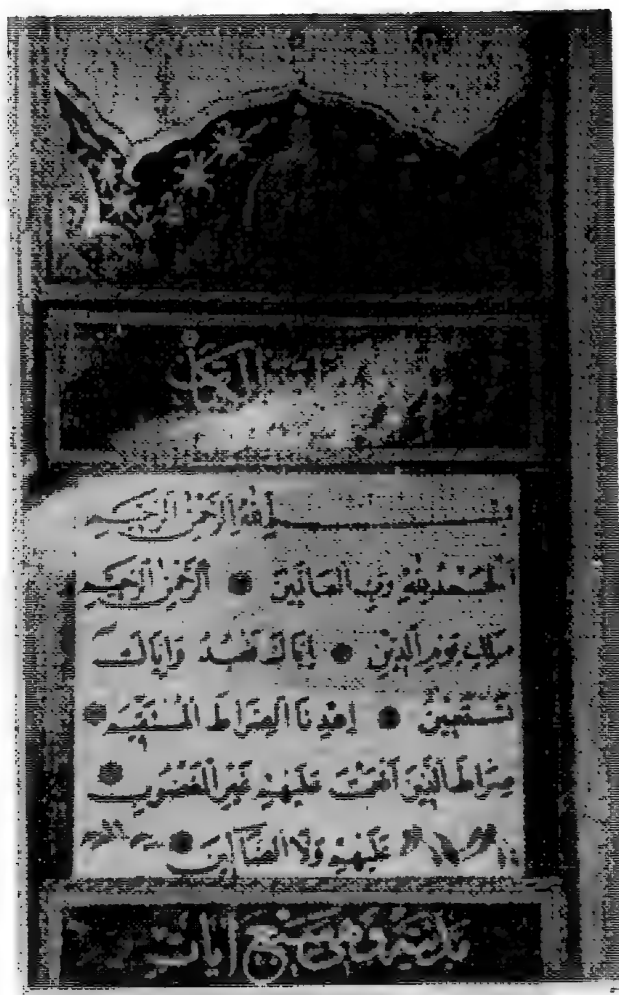 الكتاب
بسم اللَّهِ الرَّحْمٰنِ الرَّحِيمِ
اَلْحَمْدُ لِلّٰهِ رَبِّ الْعَالَمِينَ ● اَلرَّحْمٰنِ الرَّحِيمِ
مٰلِكِ يَوْمِ الدِّينِ ● اِيَّاكَ نَعْبُدُ وَاِيَّاكَ
نَسْتَعِينُ ● اِهْدِنَا الصِّرَاطَ الْمُسْتَقِيمَ ●
صِرَاطَ الَّذِينَ اَنْعَمْتَ عَلَيْهِمْ غَيْرِ الْمَغْضُوبِ
عَلَيْهِمْ وَلَا الضَّالِّينَ ●
وهي سبع آيات